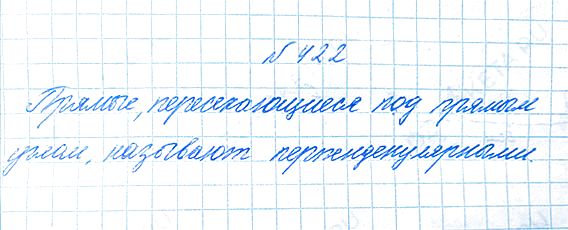 № 422
Прямые, пересекающиеся под прямым
углом, называют перпендикулярными.